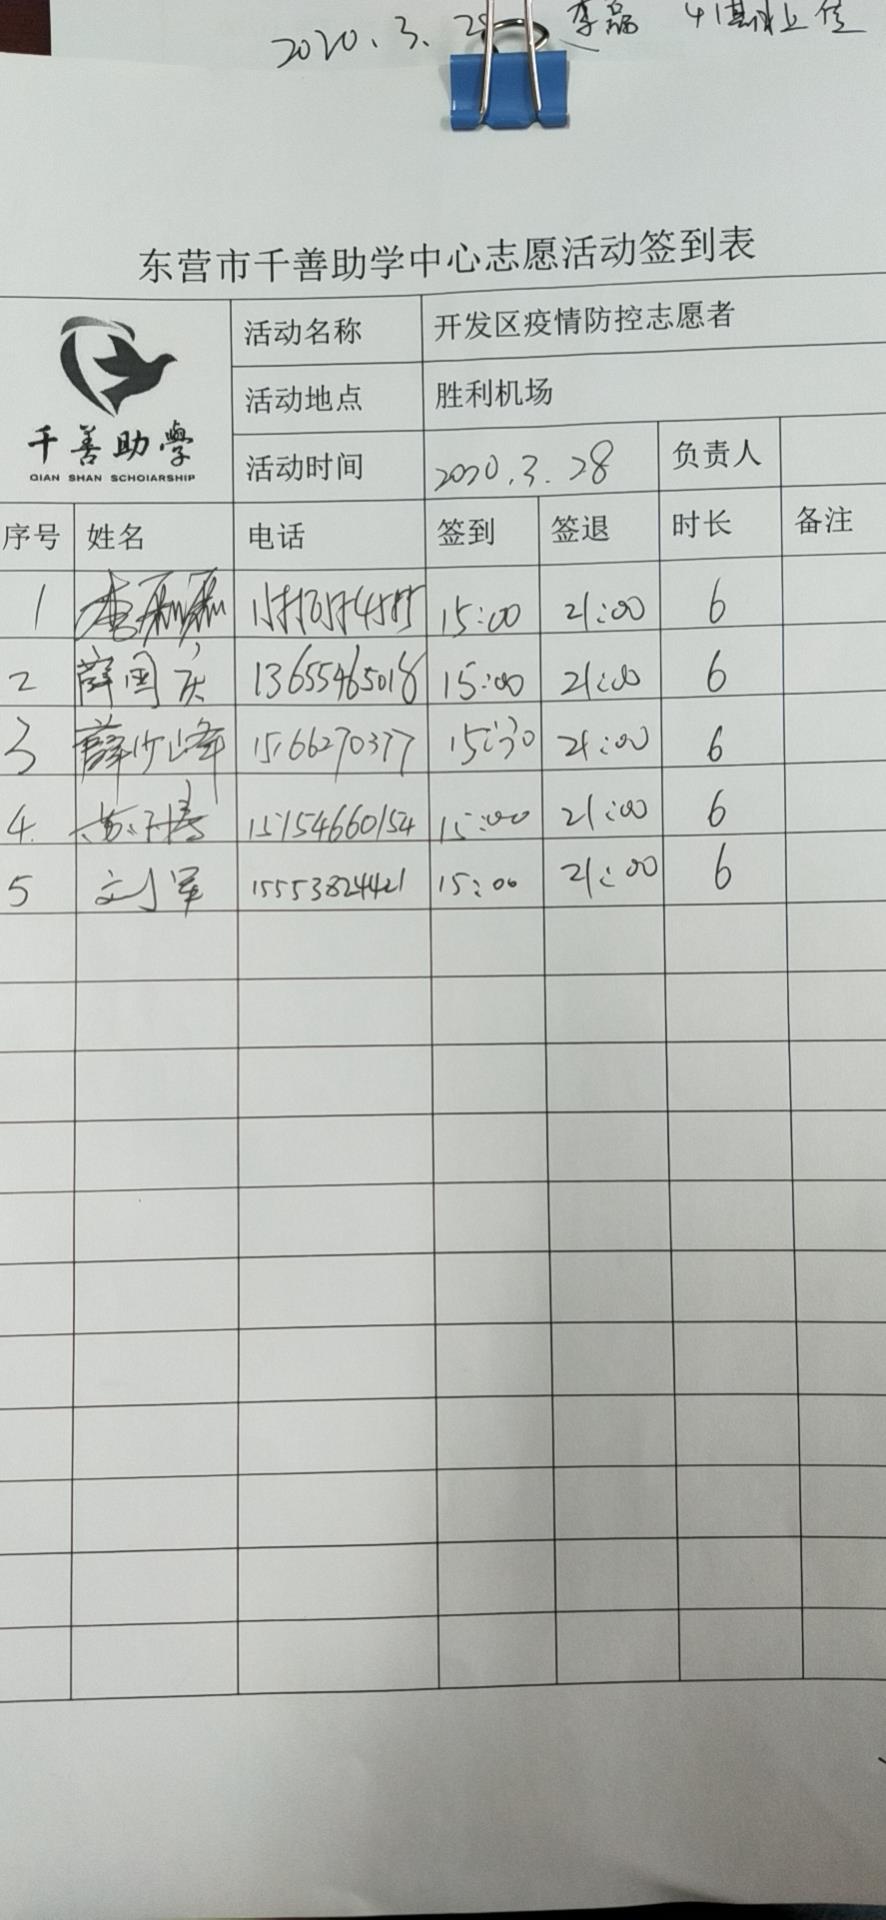 2020.3.28 李磊
东营市千善助学中心志愿活动签到表
千善助學
QIAN SHAN SCHOIARSHIP
活动名称 开发区疫情防控志愿者
活动地点 胜利机场
活动时间 2020.3.28 负责人
序号 姓名 电话 签到 签退 时长 备注
1 15:00 21:00 6
2 薛国庆 13655465018 15:00 21:00 6
3 薛少峰 15166270377 15:30 21:00 6
4. 15154660154 15:00 21:00 6
5 刘军 15553824421 15:00 21:00 6